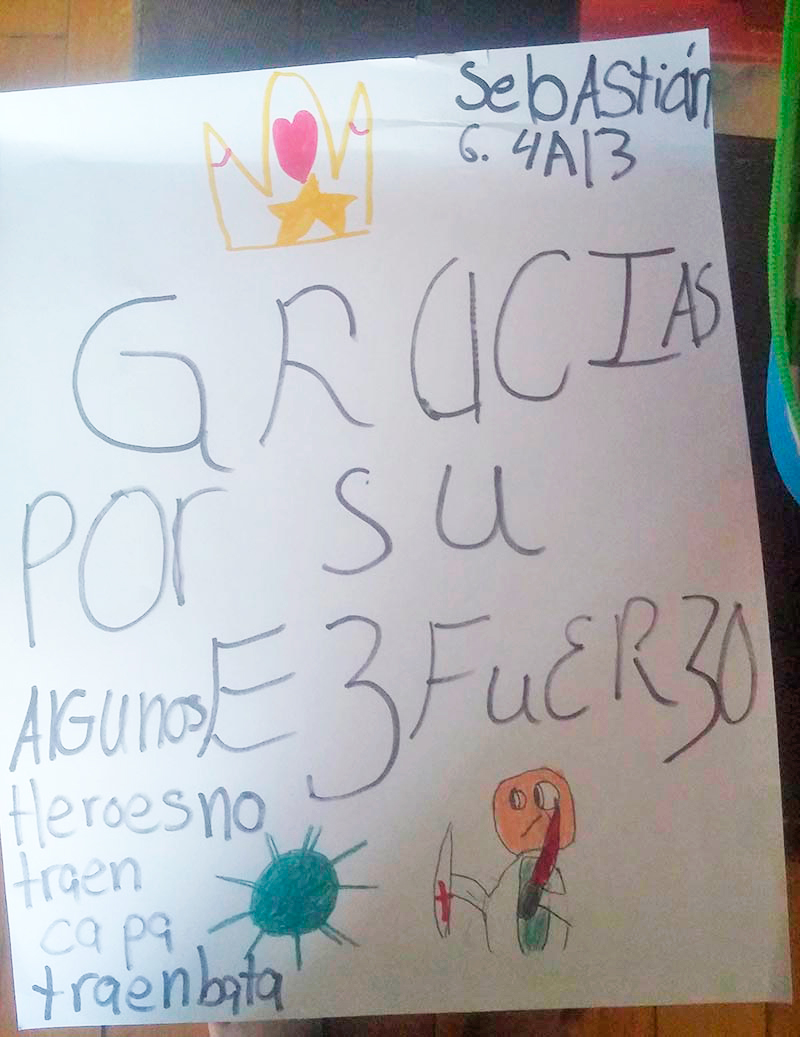 SebAStián
G. 4A13
GRACIAS
POr su
E3FuER30
AlGunos
Heroes no
traen
capa
traen bata